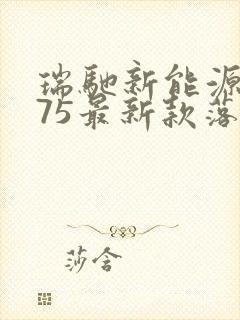 瑞驰新能源
75最新款落
莎含